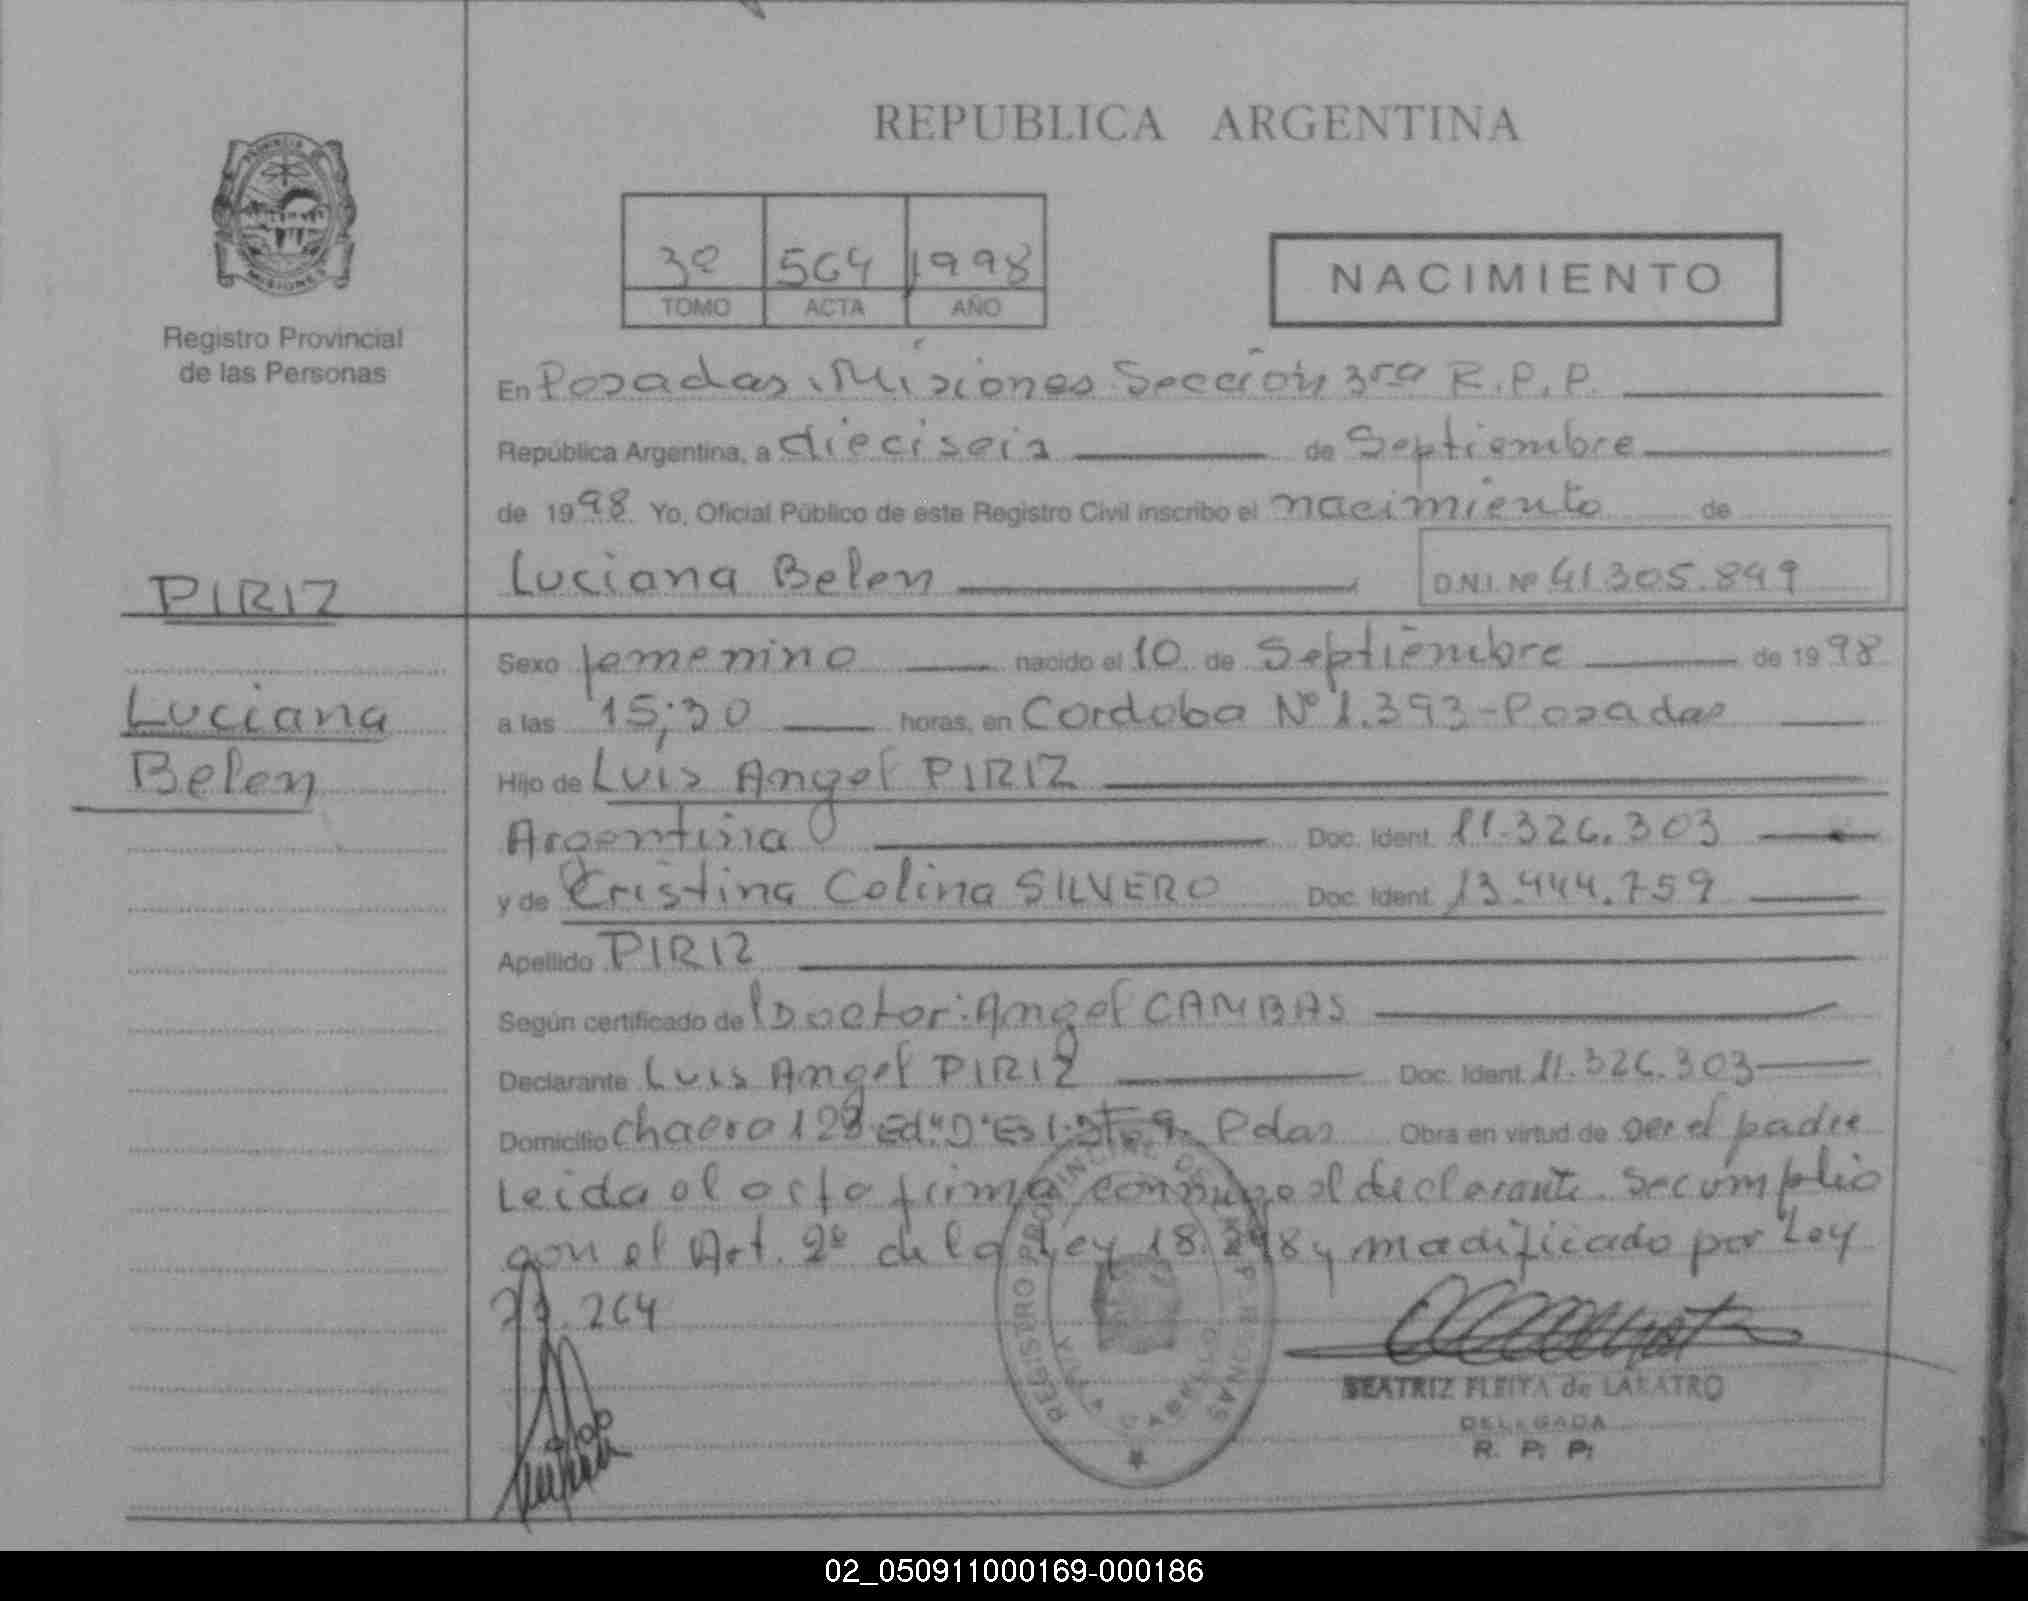 REPUBLICA ARGENTINA
PROVINCIA
MISIONES
Registro Provincial
de las Personas
3º 564 1998
TOMO ACTA AÑO
NACIMIENTO
En Posadas, Misiones Sección 3ra R.P.P.
República Argentina, a dieciseis de Septiembre
de 1998 Yo, Oficial Público de este Registro Civil inscribo el nacimiento de
Luciana Belen D.N.I. Nº 41.305.849
PIRIZ
Luciana
Belen
Sexo femenino nacido el 10 de Septiembre de 1998
a las 15;30 horas, en Cordoba Nº 1.393-Posadas
Hijo de Luis Angel PIRIZ
Argentina Doc. Ident. 11.326.303
y de Cristina Celina SILVERO Doc. Ident. 13.444.759
Apellido PIRIZ
Según certificado del Doctor: Angel CAMBAS
Declarante Luis Angel PIRIZ Doc. Ident. 11.326.303
Domicilio chacra Pdas Obra en virtud de ser el padre
Leida el acta firma conmigo el declarante. Se cumplio
con el Art. 2º de la Ley 18.248 y modificado por Ley
23.264
REGISTRO PROVINCIAL DE LAS PERSONAS
BEATRIZ FLEITA de
DELEGADA
R. P. P.
02_050911000169-000186